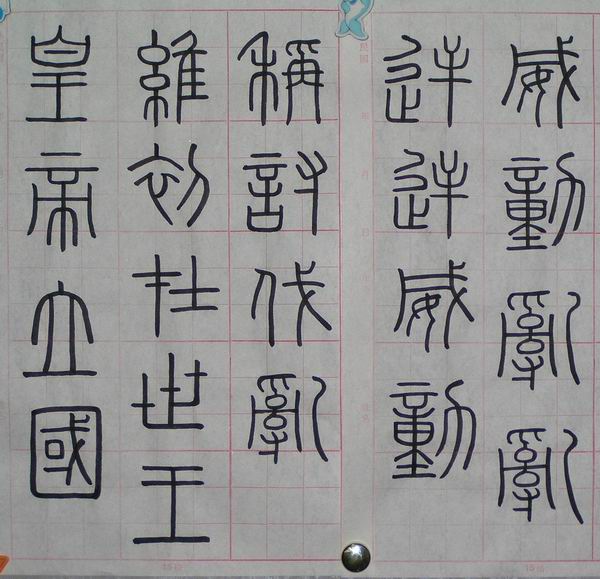 皇帝立國
維初在世王
稱討伐亂
逆逆威動
威動亂亂